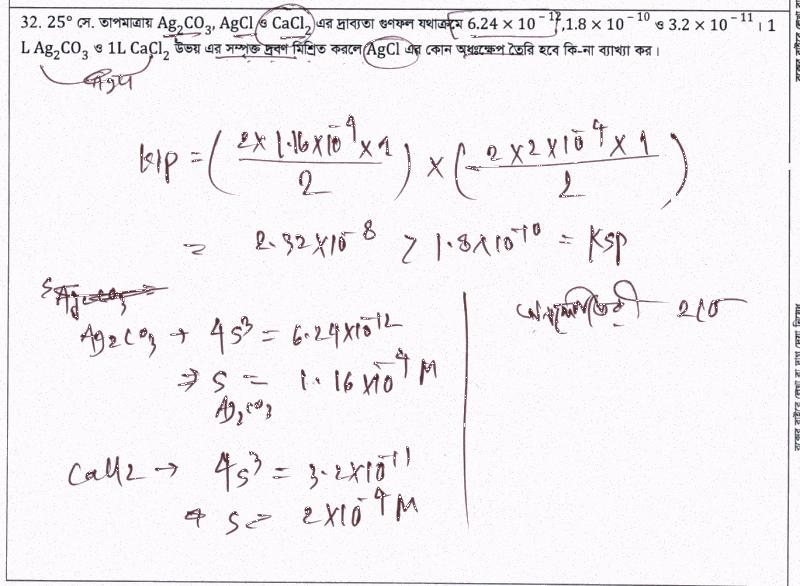 32. 25° সে. তাপমাত্রায় Ag₂CO₃, AgCl ও CaCl₂ এর দ্রাব্যতা গুণফল যথাক্রমে 6.24 × 10⁻¹², 1.8 × 10⁻¹⁰ ও 3.2 × 10⁻¹¹ । 1
L Ag₂CO₃ ও 1L CaCl₂ উভয় এর সম্পৃক্ত দ্রবণ মিশ্রিত করলে AgCl এর কোন অধঃক্ষেপ তৈরি হবে কি-না ব্যাখ্যা কর।
Kip = (2 × 1.16 × 10⁻⁴ × 1 / 2) × (2 × 2 × 10⁻⁴ × 1 / 2)
= 2.32 × 10⁻⁸ > 1.8 × 10⁻¹⁰ = Ksp
Ag₂CO₃ → 4s³ = 6.24 × 10⁻¹²
⇒ s = 1.16 × 10⁻⁴ M
Ag₂CO₃
CaCl2 → 4s³ = 3.2 × 10⁻¹¹
s = 2 × 10⁻⁴ M